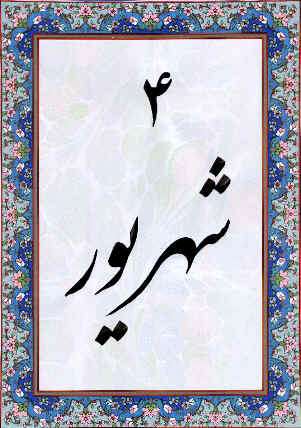 ۴
شهریور